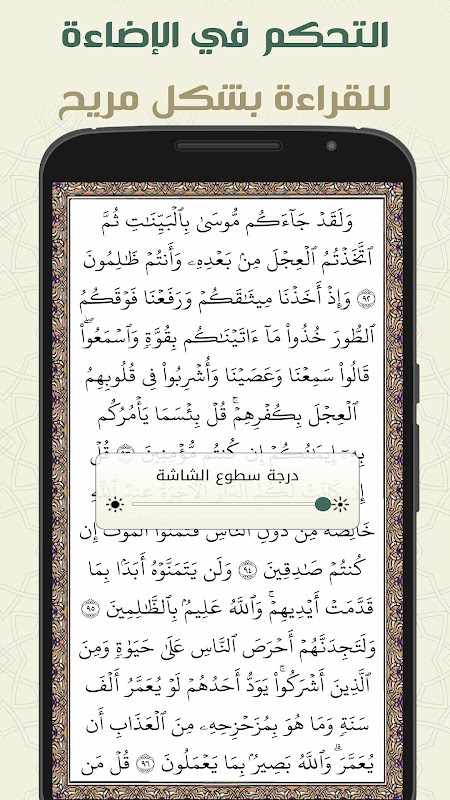 التحكم في الإضاءة
للقراءة بشكل مريح
وَلَقَدْ جَآءَكُم مُّوسَىٰ بِٱلْبَيِّنَٰتِ ثُمَّ
ٱتَّخَذْتُمُ ٱلْعِجْلَ مِنۢ بَعْدِهِۦ وَأَنتُمْ ظَٰلِمُونَ
٩٢ وَإِذْ أَخَذْنَا مِيثَٰقَكُمْ وَرَفَعْنَا فَوْقَكُمُ
ٱلطُّورَ خُذُوا۟ مَآ ءَاتَيْنَٰكُم بِقُوَّةٍ وَٱسْمَعُوا۟ۖ
قَالُوا۟ سَمِعْنَا وَعَصَيْنَا وَأُشْرِبُوا۟ فِى قُلُوبِهِمُ
ٱلْعِجْلَ بِكُفْرِهِمْۚ قُلْ بِئْسَمَا يَأْمُرُكُم
بِهِۦٓ إِيمَٰنُكُمْ إِن كُنتُم مُّؤْمِنِينَ قُلْ
درجة سطوع الشاشة
إِن كَانَتْ لَكُمُ ٱلدَّارُ ٱلْءَاخِرَةُ عِندَ ٱللَّهِ
خَالِصَةً مِّن دُونِ ٱلنَّاسِ فَتَمَنَّوُا۟ ٱلْمَوْتَ إِن
كُنتُمْ صَٰدِقِينَ ٩٤ وَلَن يَتَمَنَّوْهُ أَبَدًۢا بِمَا
قَدَّمَتْ أَيْدِيهِمْۚ وَٱللَّهُ عَلِيمٌۢ بِٱلظَّٰلِمِينَ ٩٥
وَلَتَجِدَنَّهُمْ أَحْرَصَ ٱلنَّاسِ عَلَىٰ حَيَوٰةٍ وَمِنَ
ٱلَّذِينَ أَشْرَكُوا۟ۚ يَوَدُّ أَحَدُهُمْ لَوْ يُعَمَّرُ أَلْفَ
سَنَةٍ وَمَا هُوَ بِمُزَحْزِحِهِۦ مِنَ ٱلْعَذَابِ أَن
يُعَمَّرَۗ وَٱللَّهُ بَصِيرٌۢ بِمَا يَعْمَلُونَ ٩٦ قُلْ مَن